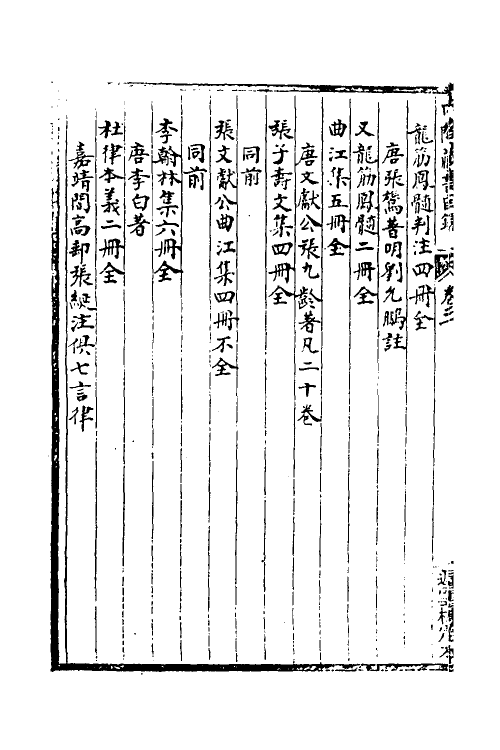 龍筋鳳髓判注四冊全
唐張鷟著明劉允鵬註
又龍筋鳳髓二冊全
曲江集五冊全
唐文獻公張九齡著凡二十卷
張子壽文集四冊全
同前
張文獻公曲江集四冊不全
同前
李翰林集六冊全
唐李白著
杜律本義二冊全
嘉靖間高郵張綖注俱七言律
卷二